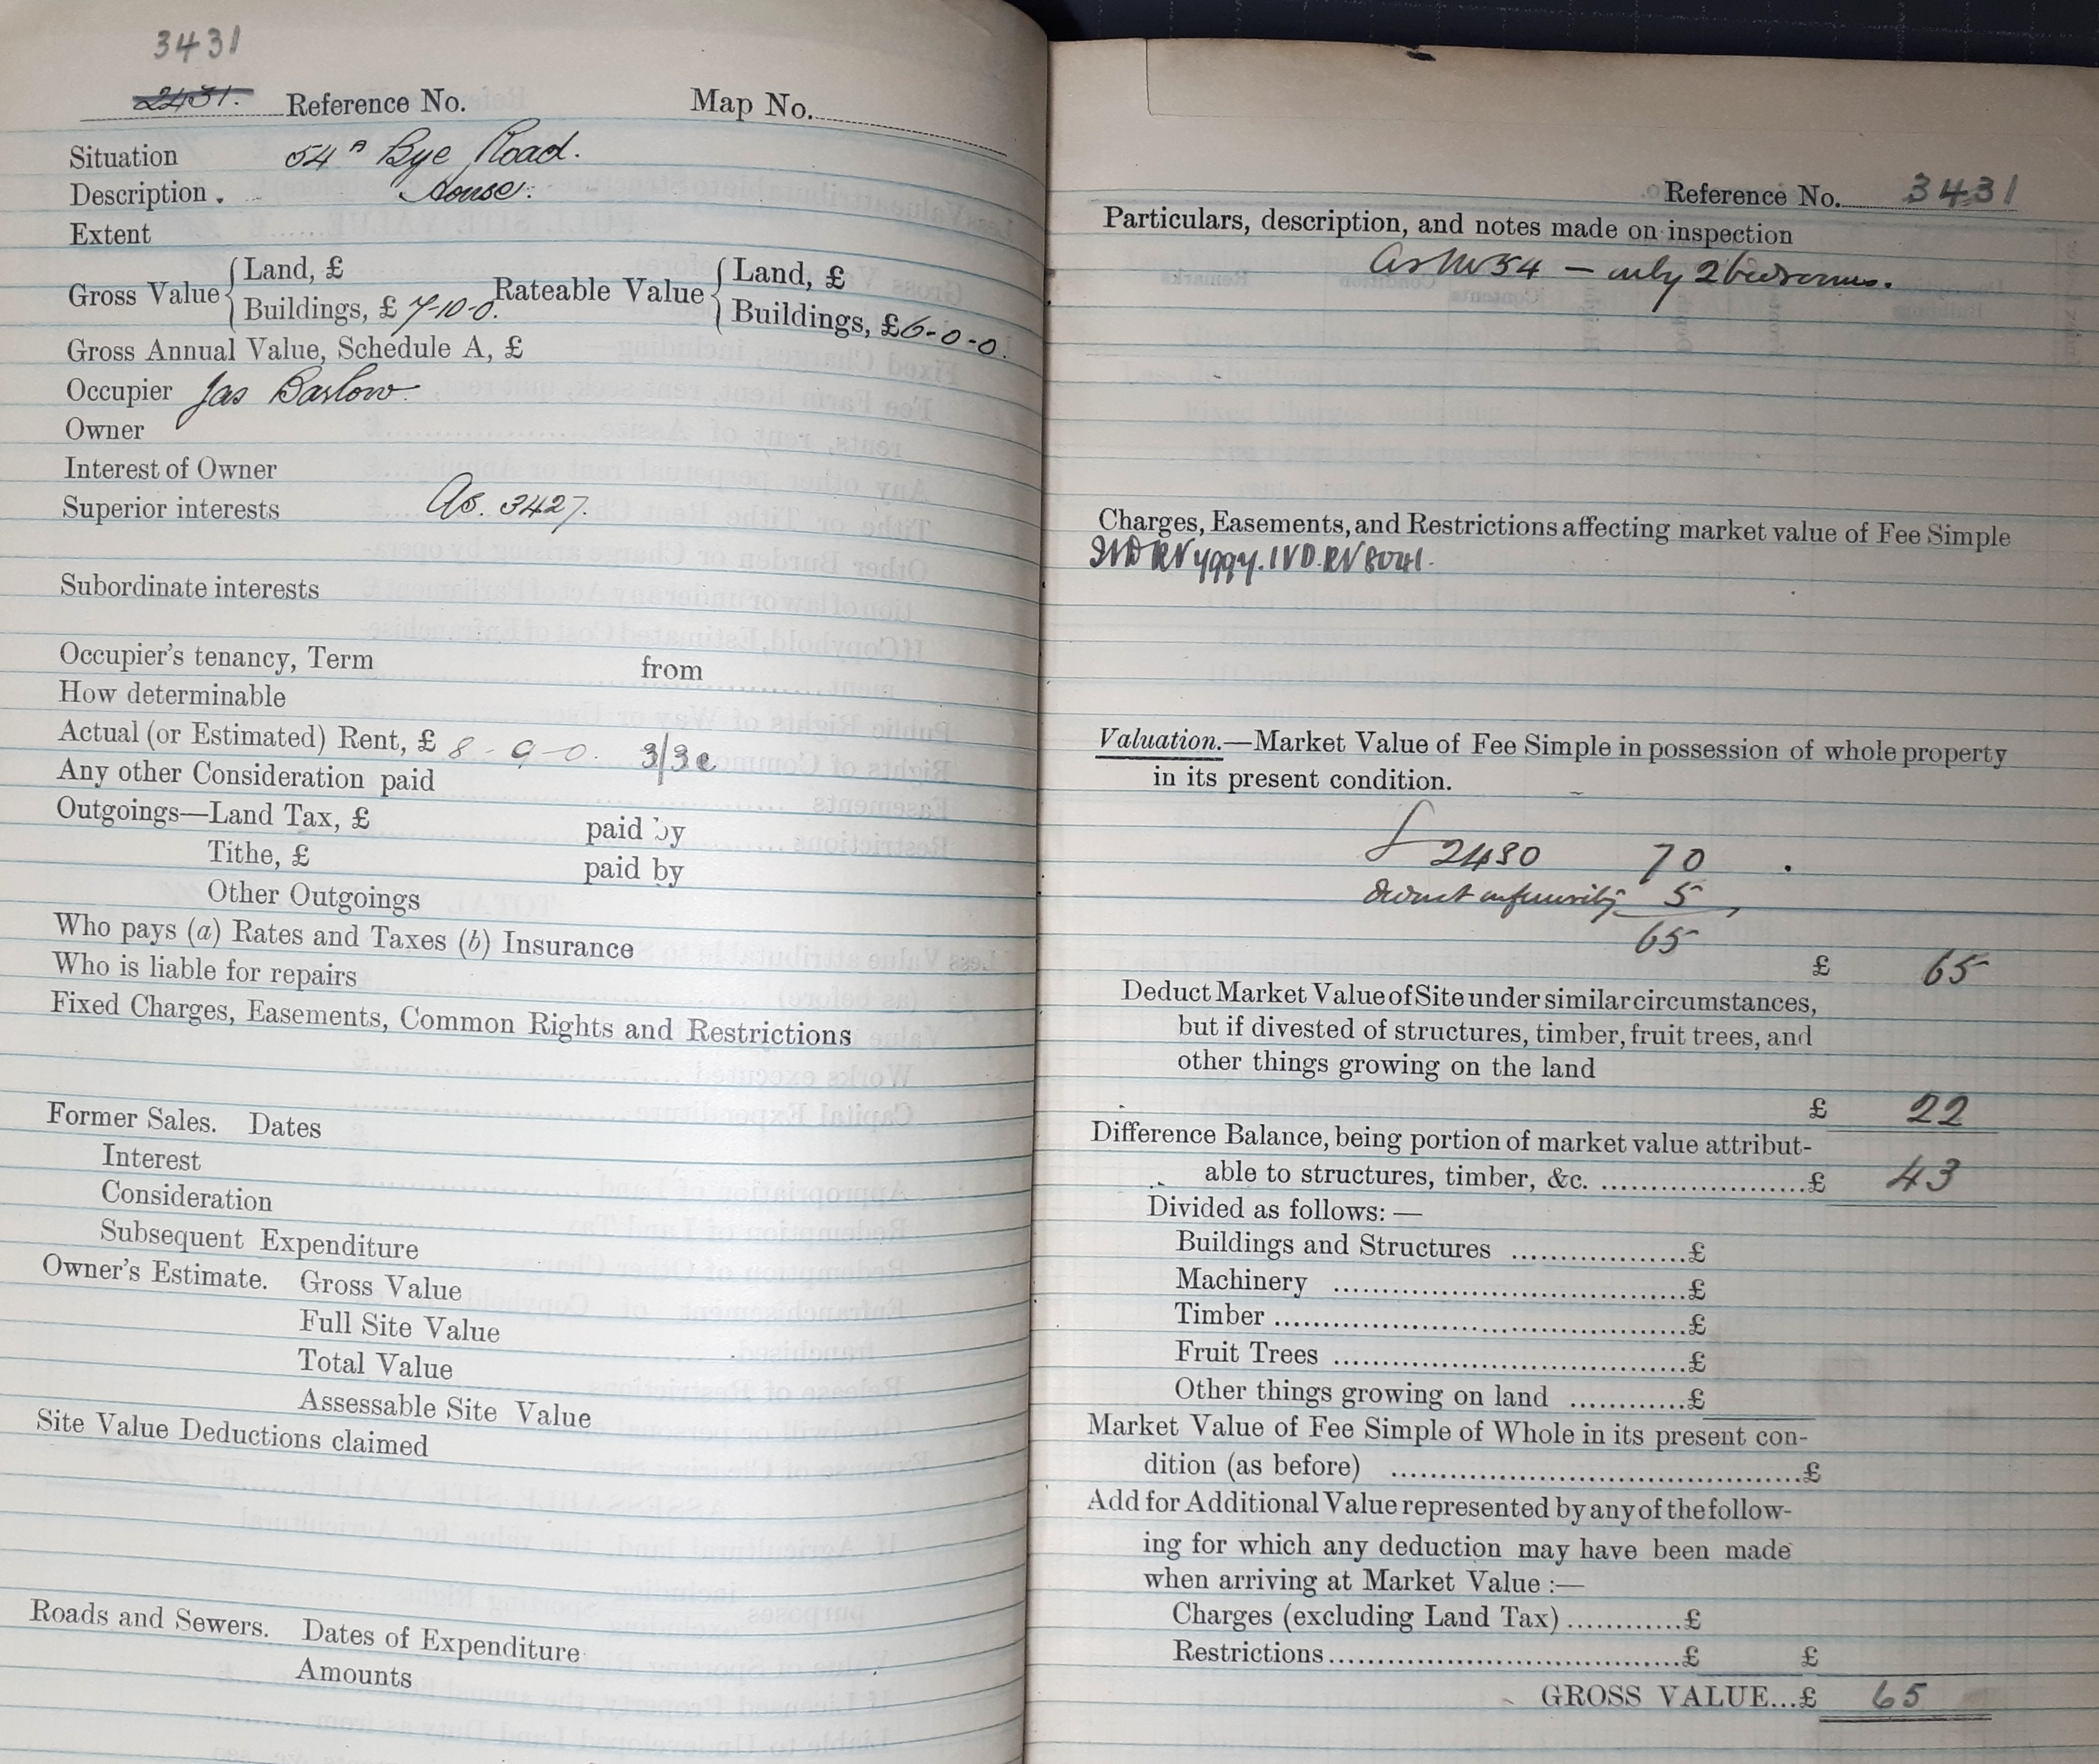 3431
2431. Reference No. Map No.
Situation 54A Bye Road.
Description. House.
Extent
Gross Value { Land, £ Rateable Value { Land, £
Buildings, £ 7-10-0. Buildings, £6-0-0.
Gross Annual Value, Schedule A, £
Occupier Jas Barlow.
Owner
Interest of Owner
Superior interests As. 3427.
Subordinate interests
Occupier's tenancy, Term from
How determinable
Actual (or Estimated) Rent, £ 8-9-0. 3/3
Any other Consideration paid
Outgoings—Land Tax, £ paid by
Tithe, £ paid by
Other Outgoings
Who pays (a) Rates and Taxes (b) Insurance
Who is liable for repairs
Fixed Charges, Easements, Common Rights and Restrictions
Former Sales. Dates
Interest
Consideration
Subsequent Expenditure
Owner's Estimate. Gross Value
Full Site Value
Total Value
Assessable Site Value
Site Value Deductions claimed
Roads and Sewers. Dates of Expenditure
Amounts
Reference No. 3431
Particulars, description, and notes made on inspection
As No 54 — only 2 bedrooms.
Charges, Easements, and Restrictions affecting market value of Fee Simple
IVD.RV
Valuation.—Market Value of Fee Simple in possession of whole property
in its present condition.
£ 70
deduct 5
65
£ 65
Deduct Market Value of Site under similar circumstances,
but if divested of structures, timber, fruit trees, and
other things growing on the land
£ 22
Difference Balance, being portion of market value attribut-
able to structures, timber, &c. ......................£ 43
Divided as follows:—
Buildings and Structures .................£
Machinery ..................................£
Timber ........................................£
Fruit Trees ..................................£
Other things growing on land ............£
Market Value of Fee Simple of Whole in its present con-
dition (as before) ........................................£
Add for Additional Value represented by any of the follow-
ing for which any deduction may have been made
when arriving at Market Value :—
Charges (excluding Land Tax)............£
Restrictions...................................£ £
GROSS VALUE...£ 65